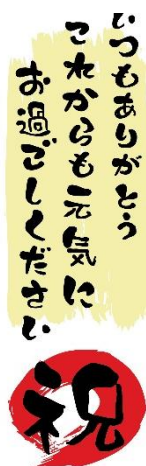 いつもありがとう
これからも元気に
お過ごしください
祝